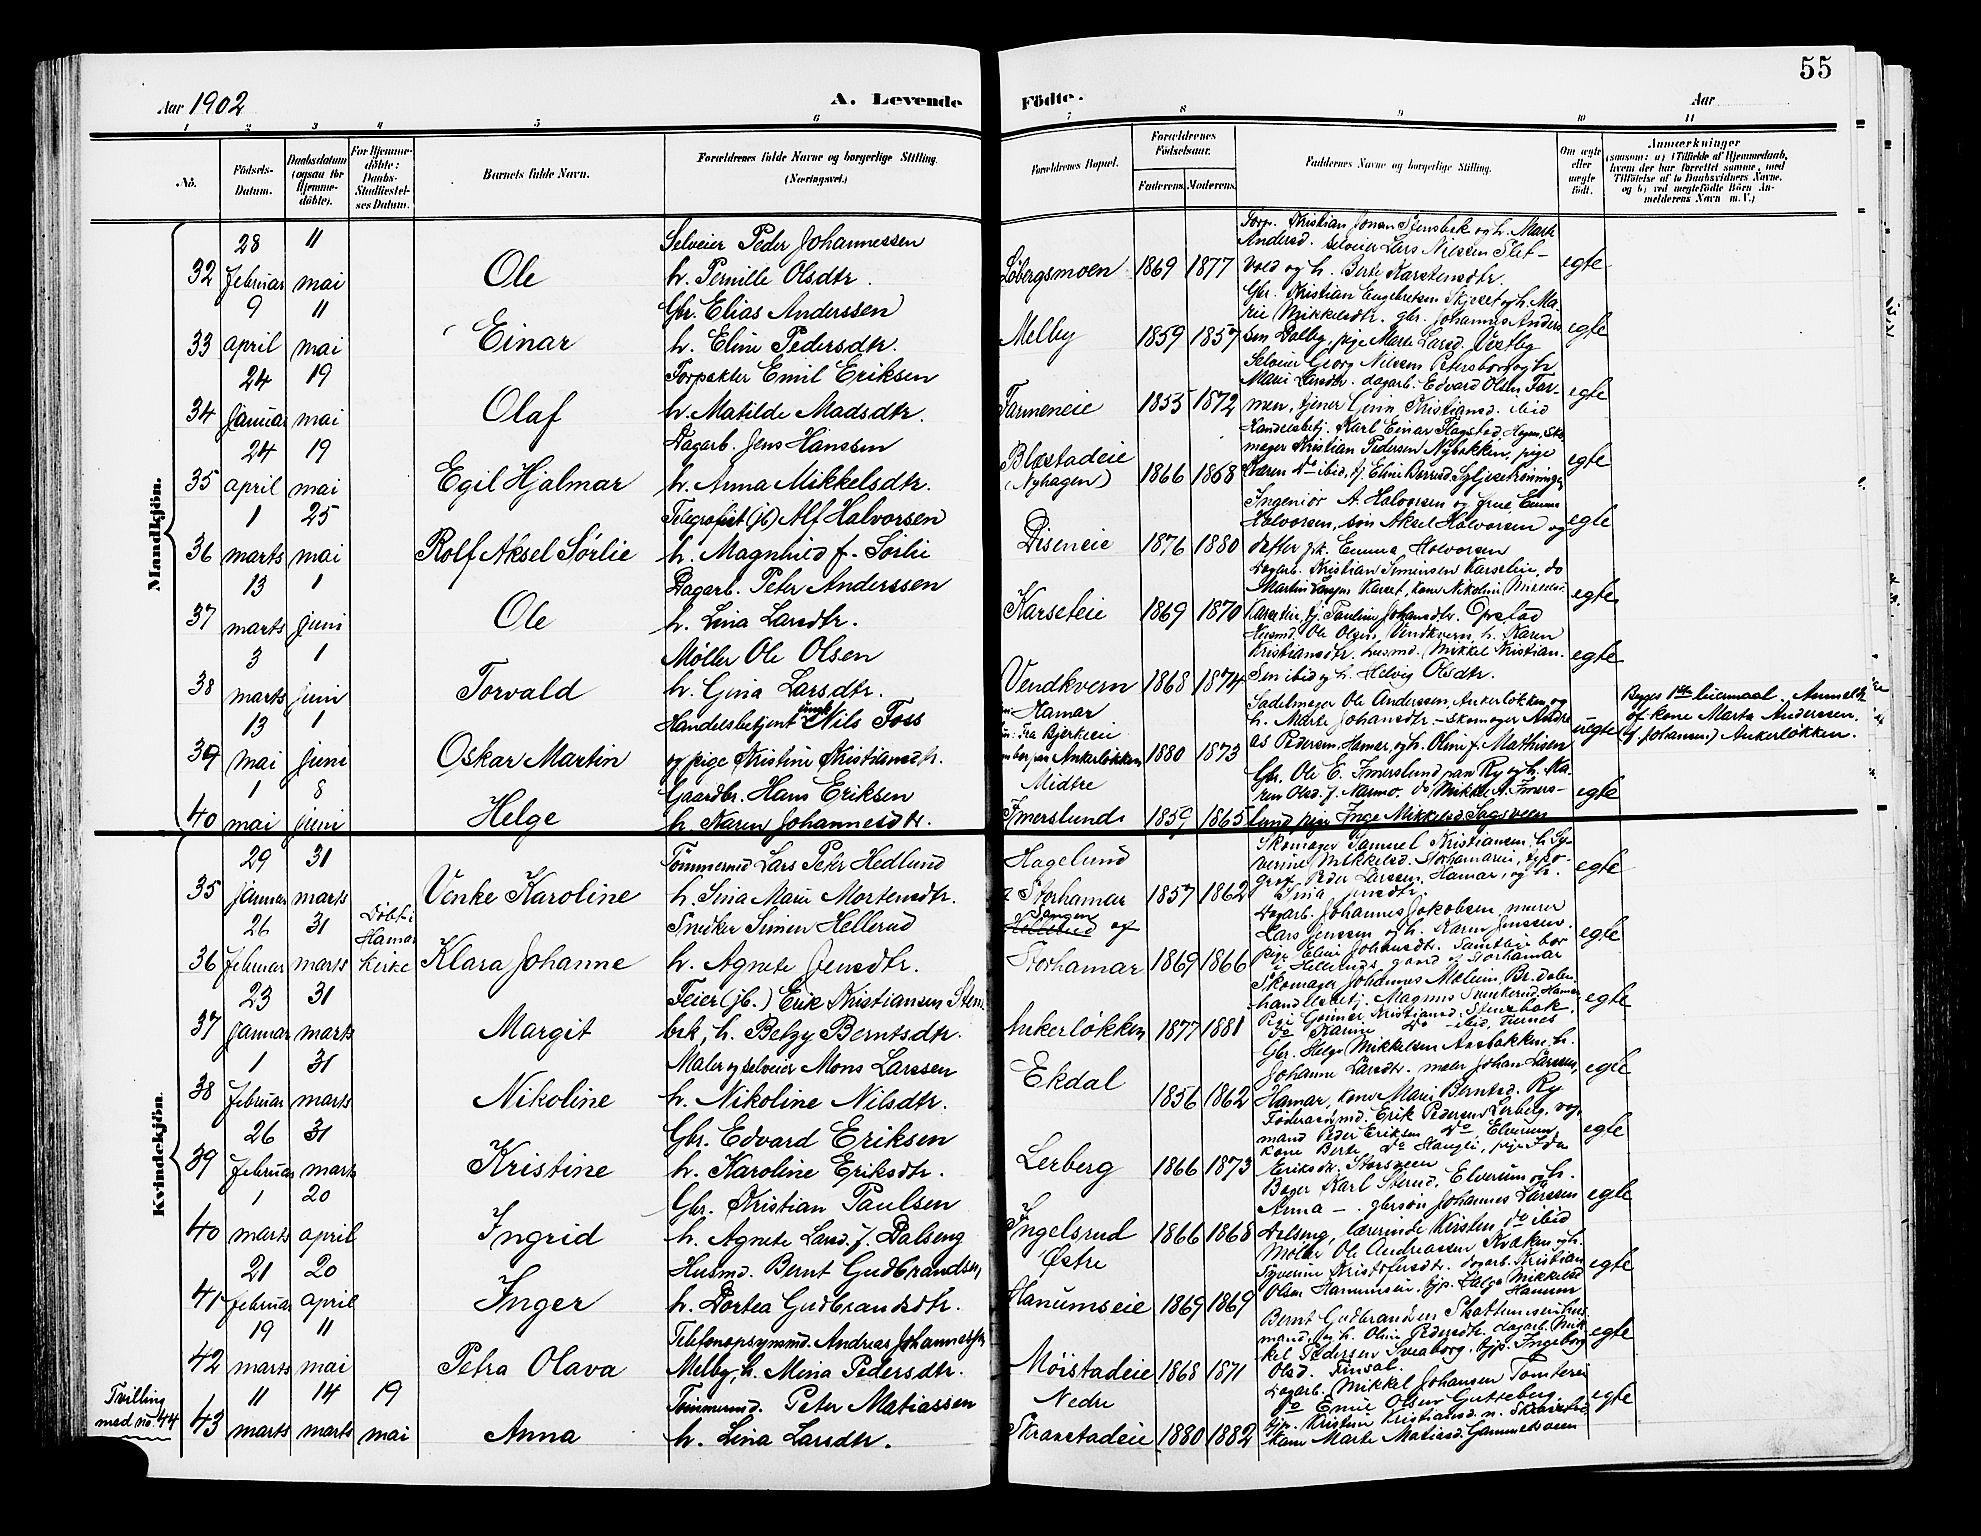 55
Aar 1902
A. Levende
Födte.
Aar
1 2 3 4 5 6 7 8 9 10 11
No.
Födsels-
Datum.
Daabsdatum
(ogsaa for
Hjemme-
döbte).
For Hjemme-
döbte:
Daabs-
Stadfæstel-
ses Datum.
Barnets fulde Navn.
Forældrenes fulde Navne og borgerlige Stilling.
(Næringsvei.)
Forældrenes Bopæl.
Forældrenes
Födselsaar.
Faderens. Moderens.
Faddernes Navne og borgerlige Stilling.
Om ægte
eller
uægte
födt.
Anmærkninger
(saasom: a) i Tilfælde af Hjemmedaab,
hvem der har forrettet samme, med
Tilföielse af to Daabsvidners Navne.
og b) ved uægtefödte Börn An-
melderens Navn m. V.)
Mandkjön.
32 28 Februar 11 mai Ole
Selveier Peder Johannessen
h. Pernille Olsdtr.
Løbergsmoen 1869 1877
Torp. Kristian Jonsen Stensbek og h. Marte
Andersd. selveier Lars Nilssen Slet-
vold og h. Berte Karstensdtr.
egte
33 9 april 11 mai Einar
Gbr. Elias Anderssen
h. Eline Pedersdtr.
Melby 1859 1857
Gbr. Kristian Engebretsen Skjeset og h. Ma-
rie Mikkelsdtr. gbr. Johannes Anders-
sen Dalby, pige Marte Larsd. Vestby
egte
34 24 Januar 19 mai Olaf
Torpekter Emil Eriksen
h. Matilde Madsdtr.
Farmeneie 1853 1872
Selveier Georg Nilssen Petersborg og h.
Marie Larsdtr. dagarb. Edvard Olsen Far-
men, tjener Gina Kristiansd. ibid
egte
35 24 april 19 mai Egil Hjalmar
Dagarb. Jens Hanssen
h. Anna Mikkelsdtr.
Blæstadeie
(Nyhagen) 1866 1868
Handelsbetj. Karl Einar Flagstad, Hagen, Sko-
mager Kristian Pedersen Nybakken, pige
Karen Do ibid,
egte
36 1 marts 25 mai Rolf Aksel Sørlie
Telegrafist (jb) Alf Halvorsen
h. Magnhild f. Sørlie
Diseneie 1876 1880
Ingeniør A. Halvorsen og frue Emma
Halvorsen, søn Aksel Halvorsen og
datter frk. Emma Halvorsen
egte
37 13 marts 1 juni Ole
Dagarb. Peter Anderssen
h. Lina Larsdtr.
Karseteie 1869 1870
Dagarb. Kristian Simensen Karseteie, do
Martin Larsen Karset, kone Nikoline Mikkelsd.
Karseteie, tj. Pauline Johansdtr. Opstad
egte
38 3 marts 1 juni Torvald
Møller Ole Olsen
h. Gina Larsdtr.
Vendkvern 1868 1874
Husmd. Ole Olsen, Vendkvern, h. Karen
Kristiansdtr. husmd. Mikkel Kristian-
sen ibid og h. Helvig Olsdtr.
egte
39 13 mai 1 Juni Oskar Martin
Handelsbetjent ungk. Nils Foss
og pige Kristine Kristiansdtr.
Hamar
Fra Bjerkeie
Ankerløkken 1880 1873
Sadelmager Ole Anderssen, Ankerløkken, og
h. Marte Johansdtr. – skomager Andre-
as Pedersen, Hamar, og h. Oline f. Mathisen
uegte
Begges 1ste leiermaal. Anmeldt
af kone Marte Anderssen.
(f. Johansen) Ankerløkken.
40 1 mai 8 juni Helge
Gaardbr. Hans Eriksen
h. Karen Johannesdtr.
Midtre
Imerslund 1859 1865
Gbr. Ole E. Imerslund paa Ry og h. Ka-
ren Olsd. f. Narmo. do Mikkel A. Imers-
lund, pige Inga Mikkelsd. Sagsveen
egte
Kvindekjön.
35 29 Januar 31 marts Venke Karoline
Tømmermd Lars Peter Hedlund
h. Sina Marie Mortensdtr.
Hagelund
Storhamar 1857 1862
Skomager Samuel Kristiansen, h. Sy-
verine Mikkelsd. Storhamareie, typo-
graf Peder Larssen, Hamar, og h.
Sina Jensdtr.
egte
36 26 Februar 31 marts Døbt i Hamar kirke Klara Johanne
Snedker Simen Hellerud
h. Agnete Jensdtr.
Sangen
Hellerud af
Storhamar 1869 1866
Dagarb. Johannes Jakobsen, murer
Lars Jenssen og h. Karen Jenssen,
pige Eline Johansdtr. Samtlige bor
i Hellerudsgaard af Storhamar
egte
37 23 Januar 31 marts Margit
Feier (jb.) Erik Kristiansen Stens-
bek, h. Betzy Berntsdtr.
Ankerløkken 1877 1881
Skomager Johannes Moluin, Br.dalen
handelsbetj. Magnus Hamar
pige Gunner Kristiansd. Stensbak,
do Karine Do ibid. Furnes
egte
38 1 Februar 31 marts Nikoline
Maler og selveier Mons Larssen
h. Nikoline Nilsdtr.
Ekdal 1856 1862
Gbr. Helge Mikkelsen Aasbakken, h.
Johanne Larsdtr. maler Johan Larssen,
Hamar, kone Marie Berntsd. Ry
egte
39 26 Februar 31 marts Kristine
Gbr. Edvard Eriksen
h. Karoline Eriksdtr.
Lerberg 1866 1873
Føderaadsmd. Erik Pedersen Lerberg, vog-
mand Peder Eriksen Do Elverum,
kone Berte Do Haugli, pige Ida
Eriksdtr. Storsveen
egte
40 1 marts 20 april Ingrid
Gbr. Kristian Paulsen
h. Agnete Larsd. f. Dalseng
Ingelsrud
Østre 1866 1868
Bager Karl Stensd. Elverum og h.
Anna – gbrsøn Johannes Larssen
Dalseng, lærerinde Kirsten do ibid
egte
41 21 Februar 20 april Inger
Husmd. Bernt Gudbrandsen
h. Dortea Gudbrandsdtr.
Hanumseie 1869 1869
Møller Ole Andreassen Kvaken og h.
Syverine Kristofersdtr. dagarb. Kristian
Olsen Hanumseie, tjp. Helga Mikkelsd
Hanum
egte
42 19 marts 11 mai Petra Olava
Telefonopsynsmd. Andreas Johannessen
Melby, h. Mina Pedersdtr.
Møistadeie 1868 1871
Bernt Gudbrandsen Skattumseie hus-
mand, og h. Oline Pedersdtr. dagarb. Mik-
kel Pedersen Sveaborg, tjp. Ingeborg
Olsd. Finsal.
egte
Tvilling
med no. 44
43 11 marts 14 marts 19 mai Anna
Tømmermd. Peter Matiassen
h. Lina Larsdtr.
Nedre
Skramstadeie 1880 1882
Dagarb. Mikkel Johansen Tomterei
do Emil Olsen Gutteberg.
tjp. Kristine Kristiansd. n. Skramstad,
kone Marte Matiasd. Gammelsveen
egte